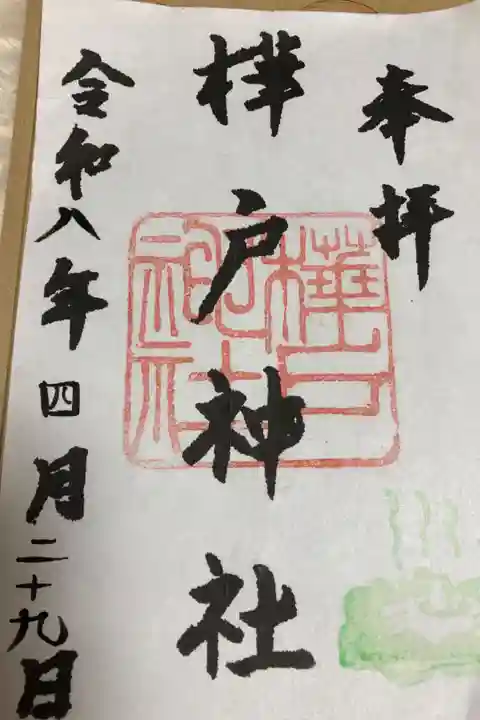 奉拝
樺戸神社
樺戸神社
令和八年四月二十九日